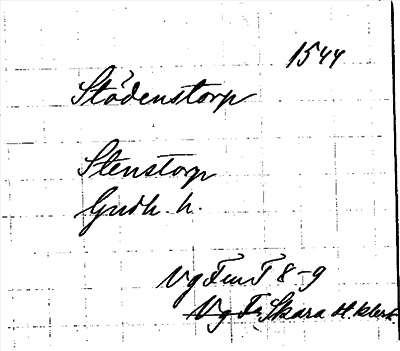 1544
Stödenstorp
Stenstorp
Gudh. h.
Vg FmT 8-9
Vg Fr Skara H. klert.